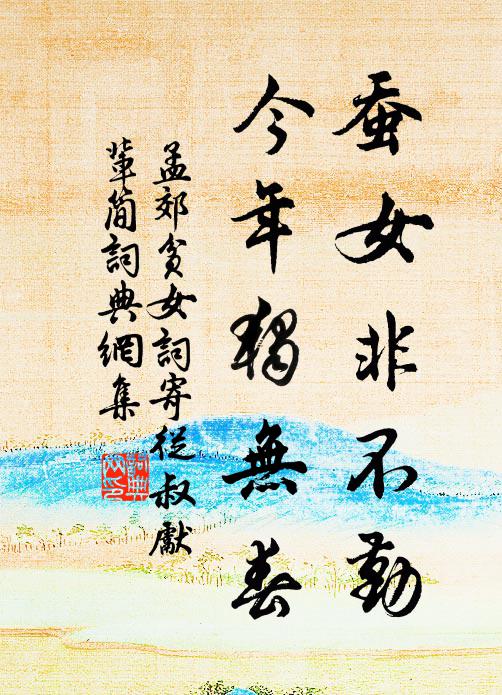 蚕女非不勤
今年獨無春
孟郊貧女詞寄從叔獻
葷简詞典網集